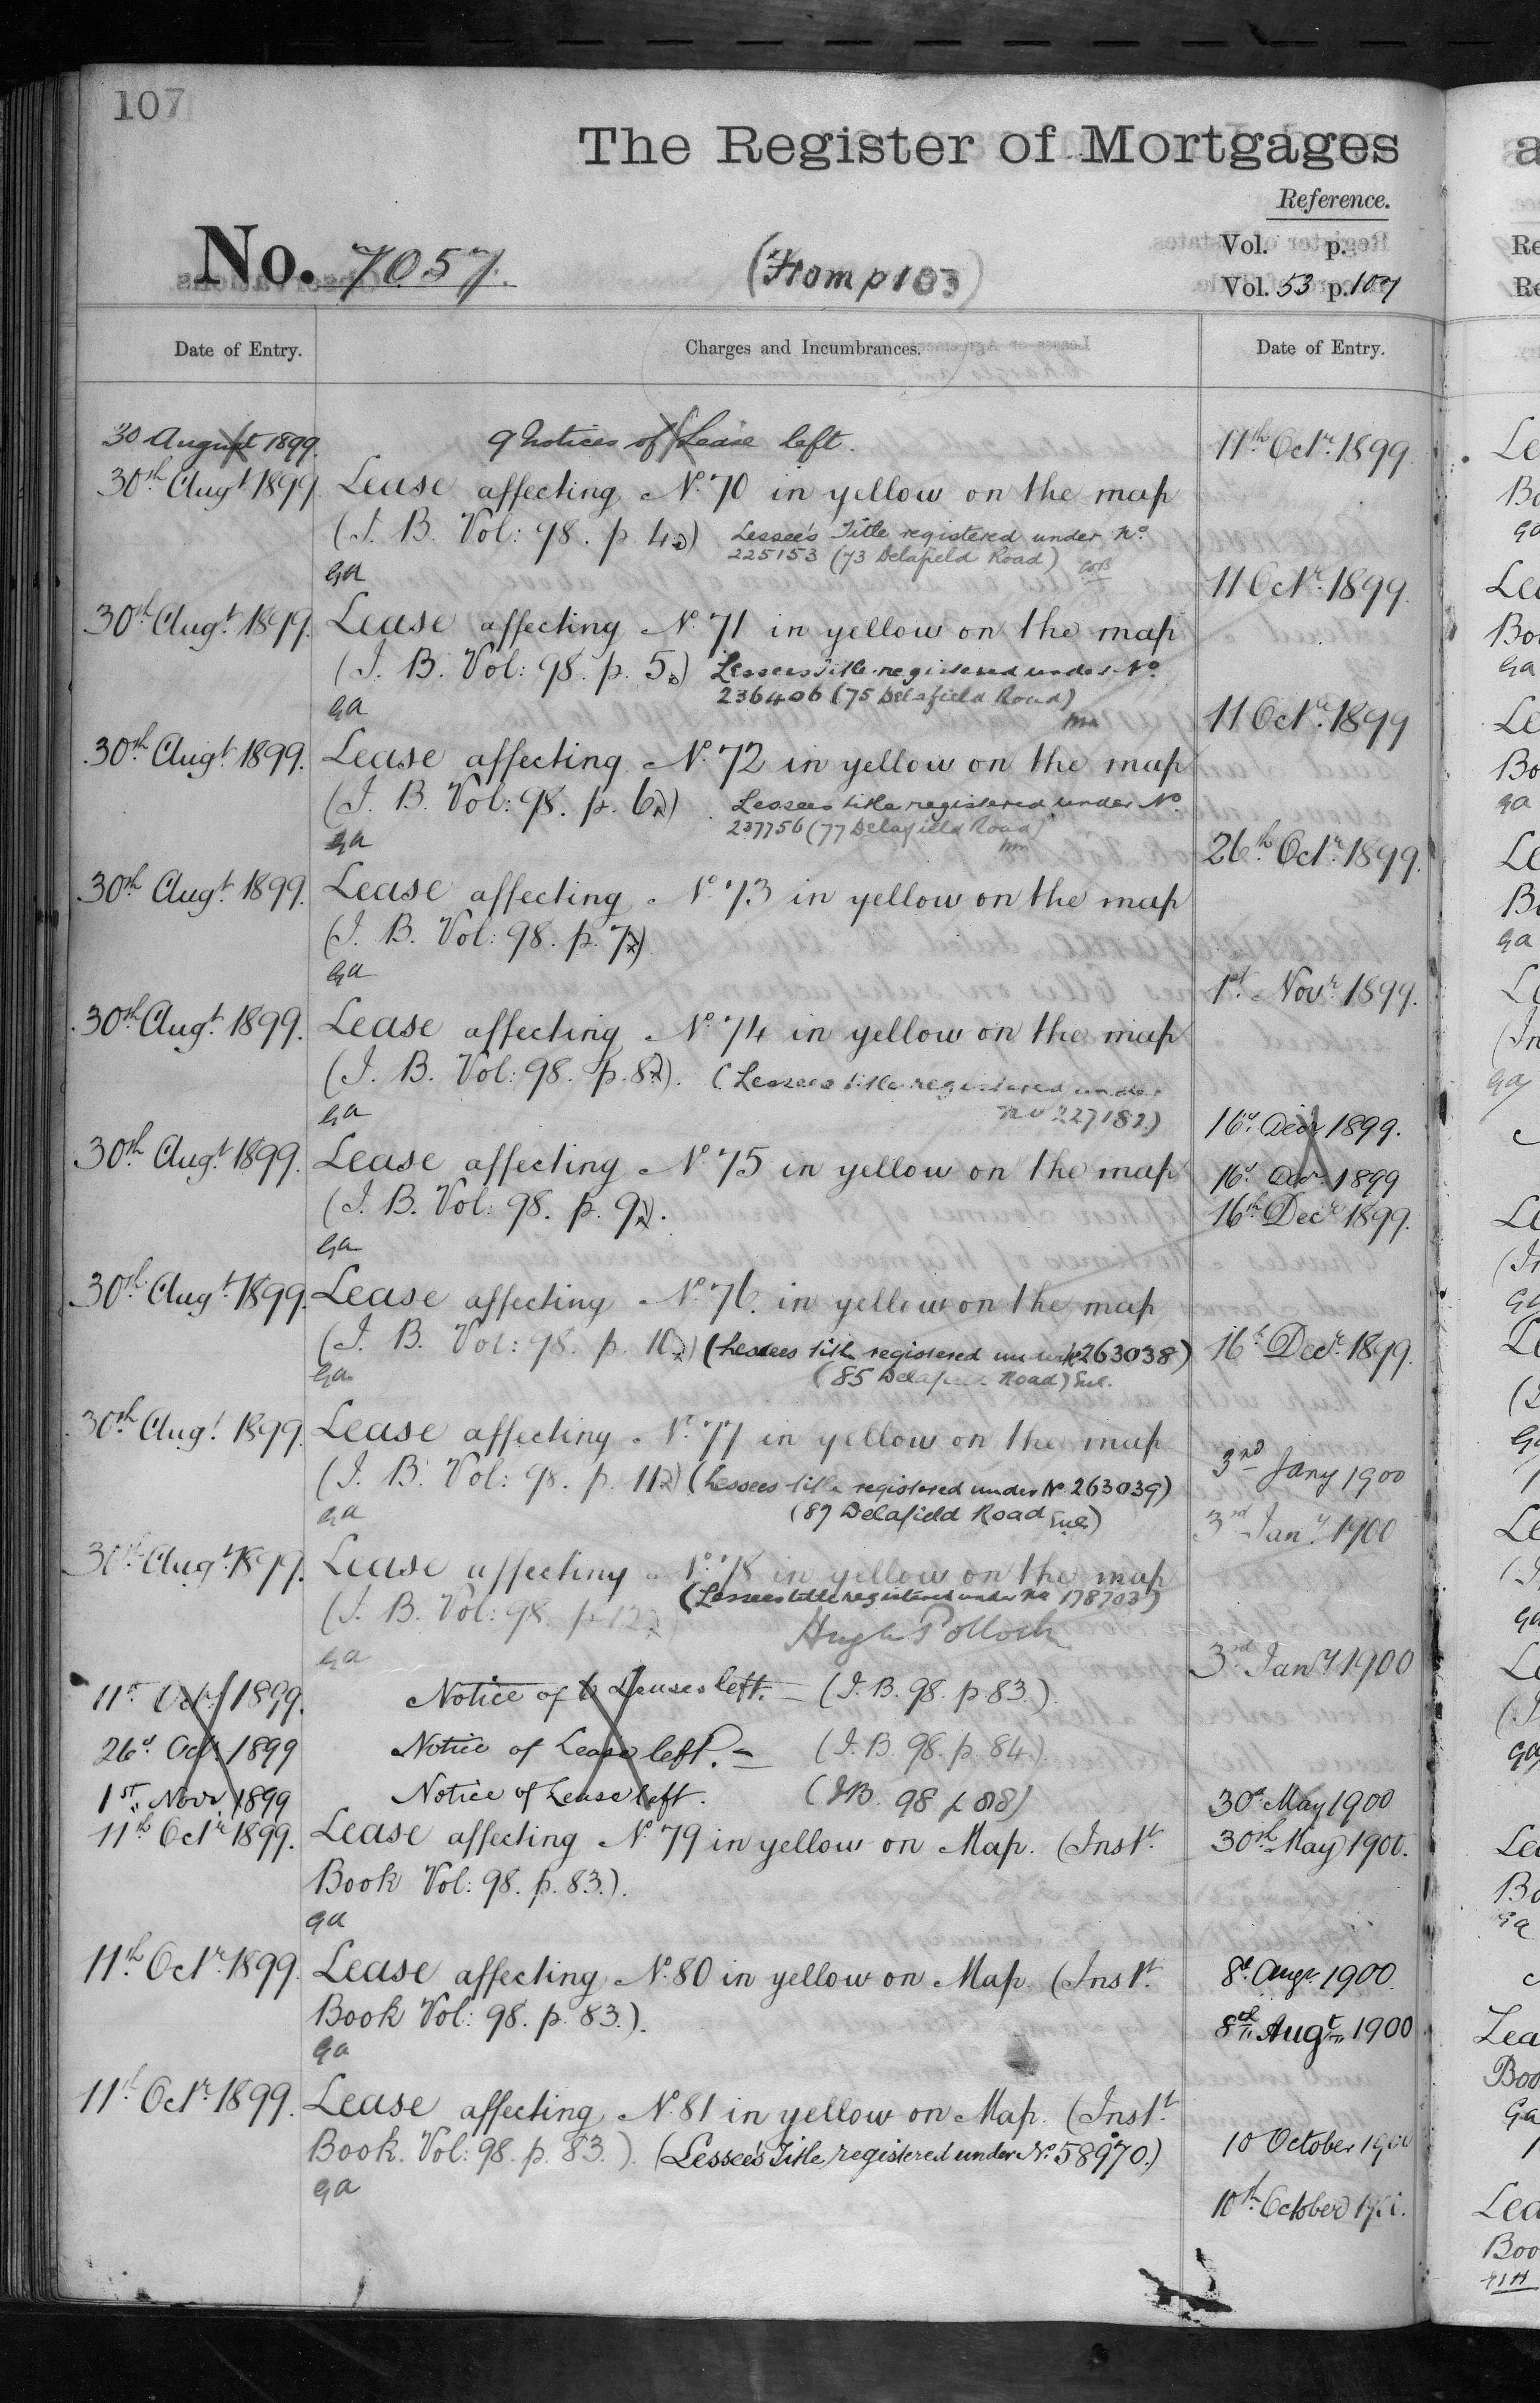 107
The Register of Mortgages
Reference.
Vol. p.
No. 7057. (From p 103) Vol. 53 p. 107
Date of Entry. Charges and Incumbrances. Date of Entry.
30 August 1899. 9 Notices of Lease left. 11th Octr. 1899
30th Augt. 1899 Lease affecting No. 70 in yellow on the map
(I. B. Vol: 98. p. 4) Lessee's Title registered under No.
225153 (73 Delafield Road)
GA 11 Octr. 1899.
30th Augt. 1899. Lease affecting No. 71 in yellow on the map
(I. B. Vol: 98. p. 5) Lessees Title registered under No
236406 (75 Delafield Road)
GA 11 Octr. 1899
30th Augt. 1899. Lease affecting No. 72 in yellow on the map
(I. B. Vol: 98. p. 6) Lessees title registered under No.
237756 (77 Delafield Road)
GA 26th Octr. 1899.
30th Augt. 1899. Lease affecting No. 73 in yellow on the map
(I. B. Vol: 98. p. 7)
GA 1st Novr. 1899.
30th Augt. 1899. Lease affecting No. 74 in yellow on the map
(I. B. Vol: 98. p. 8). (Lessees title registered under
No 227182)
GA 16th Decr 1899.
30th Augt. 1899. Lease affecting No. 75 in yellow on the map 16th Decr 1899
(I. B. Vol: 98. p. 9). 16th Decr. 1899.
GA
30th Augt. 1899. Lease affecting No. 76. in yellow on the map
(I. B. Vol: 98. p. 10) (Lessees title registered under No 263038) 16th Decr. 1899.
GA (85 Delafield Road)
30th Augt. 1899. Lease affecting No. 77 in yellow on the map
3rd Jany 1900
(I. B. Vol: 98. p. 11) (Lessees title registered under No. 263039)
GA (87 Delafield Road) 3rd Jany. 1900
30th Augt. 1899. Lease affecting No. 78 in yellow on the map
(Lessees title registered under No 178703)
(I. B. Vol: 98. p. 12)
Hugh Pollock
GA 3rd Jany 1900
11th Octr 1899. Notice of 6 Leases left. – (I. B. 98. p 83.)
26th Octr 1899 Notice of Lease left. – (I. B. 98. p. 84.)
1st Novr 1899 Notice of Lease left. (IB. 98 p 88) 30th May 1900
11th Octr. 1899. Lease affecting No. 79 in yellow on Map. (Instt. 30th May 1900.
Book Vol: 98. p. 83.).
GA
11th Octr. 1899. Lease affecting No. 80 in yellow on Map. (Instt. 8th Augt. 1900.
Book Vol: 98. p. 83.). 8th Augt. 1900
GA
11th Octr. 1899. Lease affecting No. 81 in yellow on Map. (Instt.
Book. Vol: 98. p. 83.). (Lessee's Title registered under No. 58970.) 10 October 1900
GA
10th October 1900.